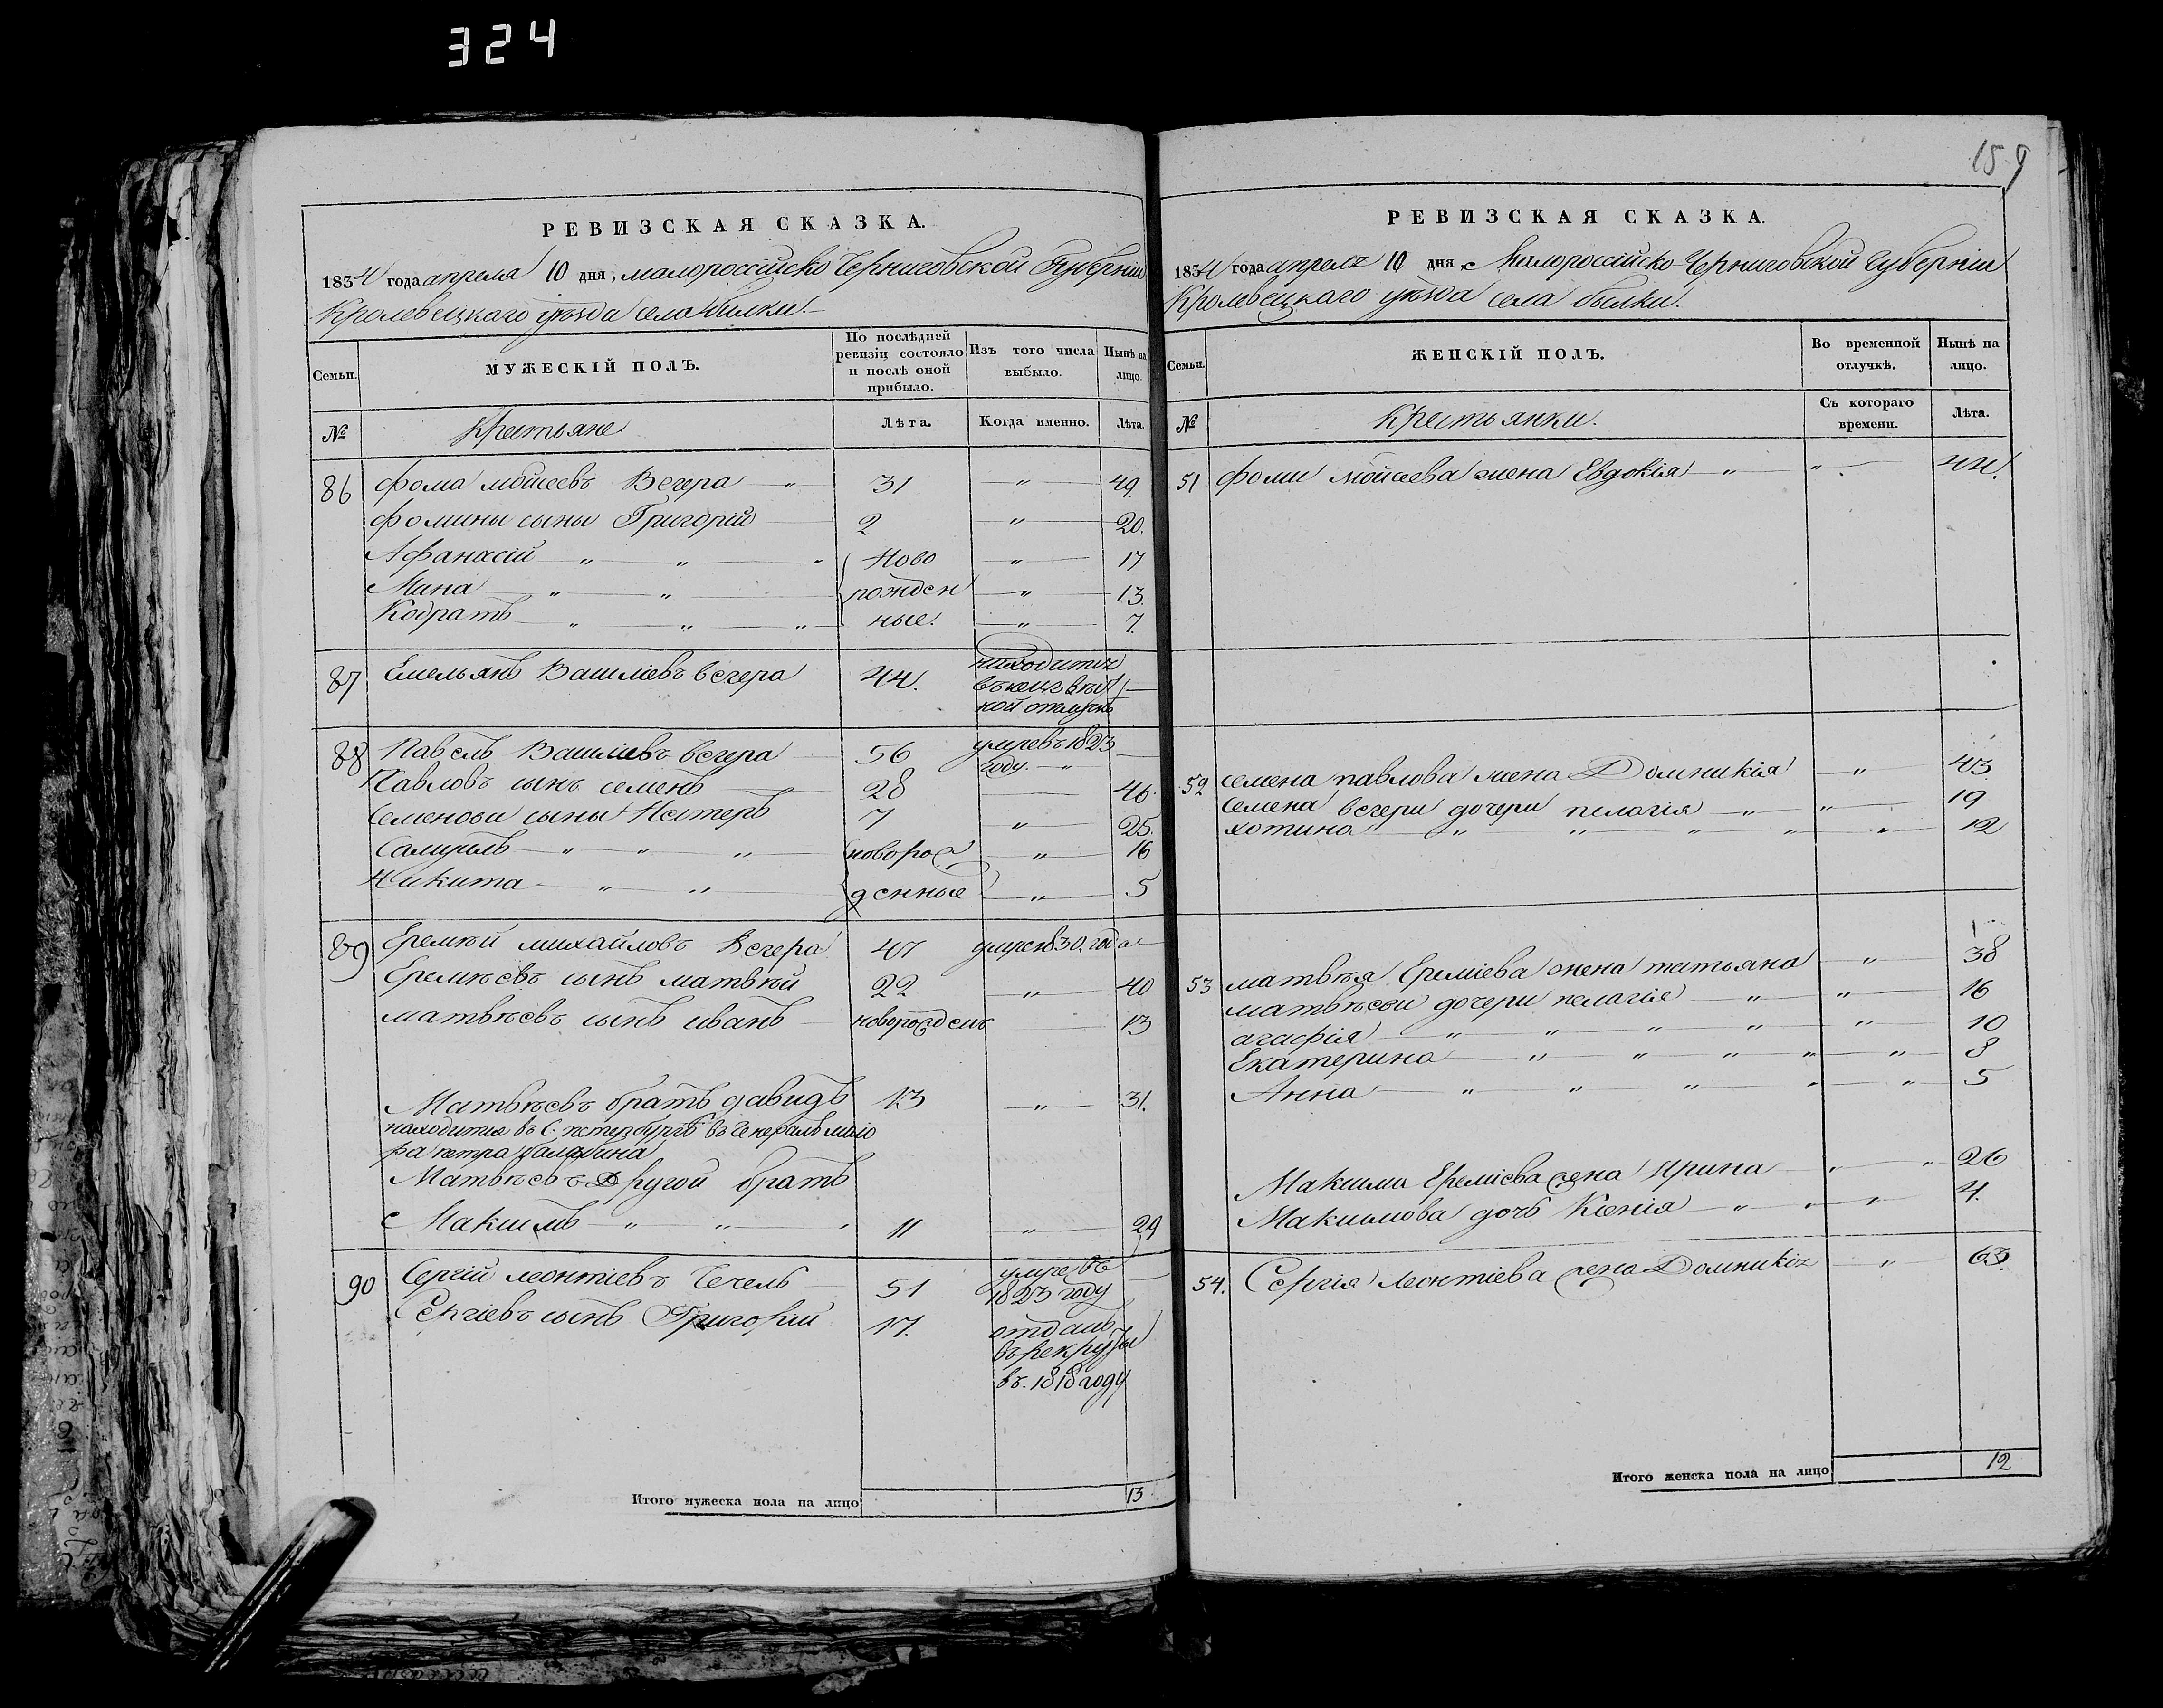 324
159
РЕВИЗСКАЯ СКАЗКА.
1834 года апреля 10 дня, малороссійско Черниговской Губерніи
Кролевецкаго уѣзда села билки.
Семьи.
МУЖЕСКІЙ ПОЛЪ.
По послѣдней ревизіи состояло и послѣ оной прибыло.
Изъ того числа выбыло.
Нынѣ на лицо.
№
Крестьяне
Лѣта.
Когда именно.
Лѣта.
86 фома мойсеевъ Вечера — „ 31 — „ — 49
фомины сыны Григорій — 2 — „ — 20.
Афанасій — „ — „ — „ Ново — „ — 17
Мина — „ — „ — рожден — „ — 13.
Кодратъ — „ — „ — „ ные. — „ — 7.
87 Емельянъ Василіевъ вечера 44.
находится
въ
ной отлучкѣ
88 Павелъ Василіевъ вечера — 56 умре въ 1823
году. — „
Павловъ сынъ семенъ — 28 — 46.
Семенови сыны Нестеръ 7 — „ — 25.
Самуилъ — „ — „ — „ новорож — „ — 16
Никита — „ — „ — денные — „ — 5
89 Еремѣй михайловъ Вечера 47 умре 1830. года —
Еремѣевъ сынъ матвѣй 22 — „ — 40
матвѣевъ сынъ иванъ — новорожденъ — 13
Матвѣевъ братъ давидъ 13 — „ — 31.
находится въ С. петербургѣ въ Генералъ маіо
ра петра
Матвѣевъ Другой братъ
Максимъ — „ — „ — „ 11 — „ — 29
90 Сергій леонтіевъ Чечель 51 умре въ
1823 году
Сергіевъ сынъ Григорій 17. отданъ
въ рекруты
въ. 1818 году
Итого мужеска пола на лицо 13
РЕВИЗСКАЯ СКАЗКА.
1834 года апреля 10 дня Малороссійско Черниговской Губерніи
Кролевецкаго уѣзда села былки.
Семьи.
ЖЕНСКІЙ ПОЛЪ.
Во временной отлучкѣ.
Нынѣ на лицо.
№
Крестьянки.
Съ котораго времени.
Лѣта.
51 фоми мойсеева жена Евдокія — „ — „ — 44.
52 семена павлова жена Домникія — „ — 43
семена вечери дочери пелагія — „ — „ — 19
хотина — „ — „ — „ — „ — „ — 12
53 матвѣя Еремієва жена татьяна — „ — 38
матвѣеви дочери пелагія — „ — „ — 16
агафія — „ — „ — „ — „ — „ — 10
Екатерина — „ — „ — „ — „ — „ — 8
Анна — „ — „ — „ — „ — „ — 5
Максима Еремієва жена Ирина — „ — „ 26
Максимова дочь Ксенія — „ — „ — „ — 4.
54. Сергія Леонтіева жена Домникія — „ — 63.
Итого женска пола на лицо 12